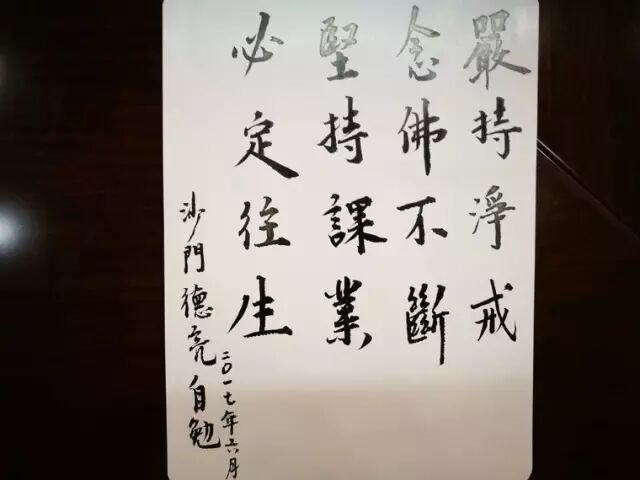 嚴持淨戒
念佛不斷
堅持課業
必定往生
二〇一七年六月
沙門德亮自勉